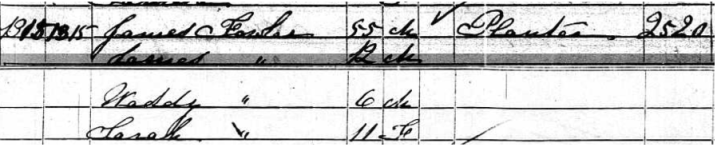 1315 1315 James Fowler 55 m Planter 2520
James " 12 m
Waddy " 6 m
Sarah " 11 F